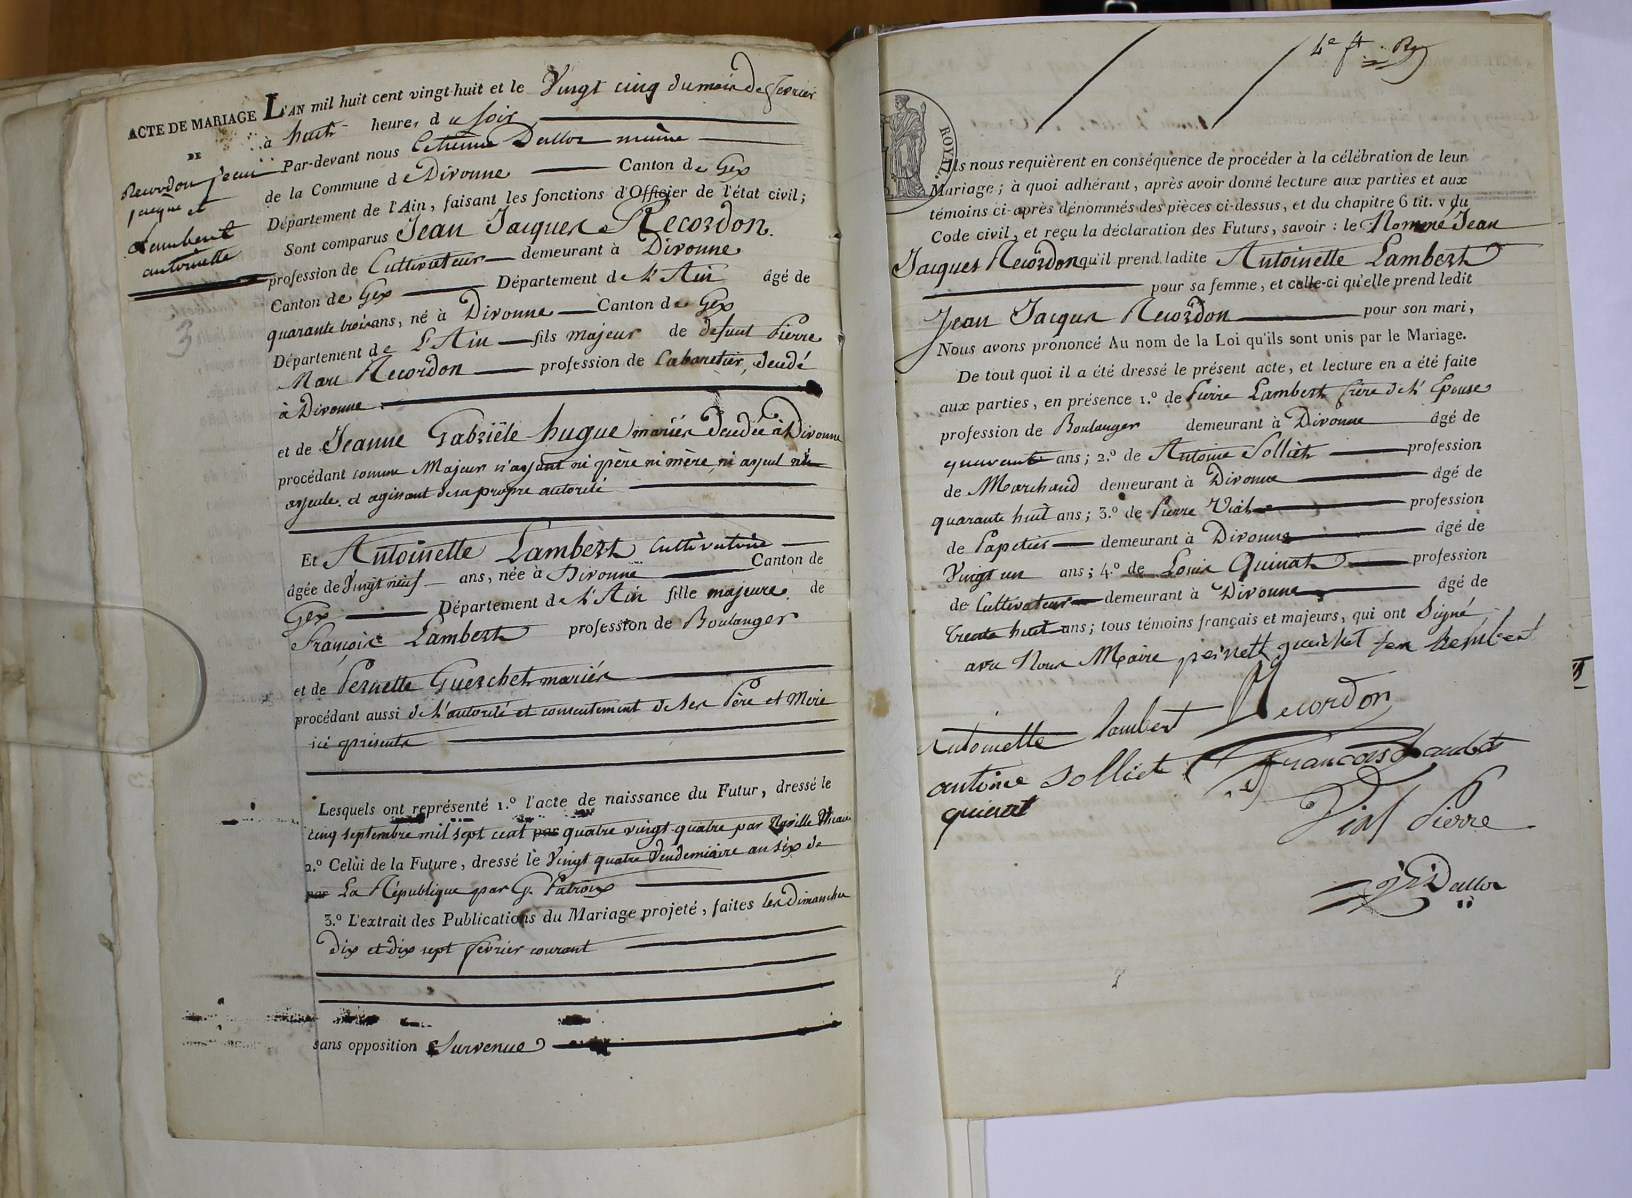 ACTE DE MARIAGE
DE
Recordon jean
jacque et
Lambert
antoinette
3
L'AN mil huit cent vingt-huit et le Vingt cinq du mois de fevrier
à huit heure, du soir
Par-devant nous Etienne Dallox maire
de la Commune de Divonne Canton de Gex
Département de l'Ain, faisant les fonctions d'Officier de l'état civil;
Sont comparus Jean Jacques Recordon.
profession de Cultivateur demeurant à Divonne
Canton de Gex Département de L'Ain âgé de
quarante trois ans, né à Divonne Canton de Gex
Département de L'Ain fils majeur de defunt Pierre
Marc Recordon profession de Cabaretier, decedé
à Divonne
et de Jeanne Gabriële hugue mariés decedée à Divonne
procédant comme Majeur n'ayant ni père ni mère, ni ayeul ni
ayeule. et agissant de sa propre autorité
Et Antoinette Lambert Cultivatrice
âgée de Vingt neuf ans, née à Divonne Canton de
Gex Département de L'Ain fille majeure de
François Lambert profession de Boulanger
et de Pernette Guerchet mariés
procédant aussi de L'autorité et consentement de ses Père et Mère
ici présents
Lesquels ont représenté 1.º l'acte de naissance du Futur, dressé le
cinq septembre mil sept cent par quatre vingt quatre par Vicaire
2.º Celui de la Future, dressé le Vingt quatre Vendemiaire an six de
par La République par G. Patroix
3.º L'extrait des Publications du Mariage projeté, faites les Dimanches
dix et dix sept fevrier courant
sans opposition Survenue
4e ft.
ROYAL.
Ils nous requièrent en conséquence de procéder à la célébration de leur
Mariage; à quoi adhérant, après avoir donné lecture aux parties et aux
témoins ci-après dénommés des pièces ci-dessus, et du chapitre 6 tit. v du
Code civil, et reçu la déclaration des Futurs, savoir: le Nommé Jean
Jacques Recordon qu'il prend ladite Antoinette Lambert
pour sa femme, et celle-ci qu'elle prend ledit
Jean Jacques Recordon pour son mari,
Nous avons prononcé Au nom de la Loi qu'ils sont unis par le Mariage.
De tout quoi il a été dressé le présent acte, et lecture en a été faite
aux parties, en présence 1.º de Pierre Lambert frère de L'Epouse
profession de Boulanger demeurant à Divonne âgé de
quarante ans; 2.º de Antoine Solliet profession
de Marchand demeurant à Divonne âgé de
quarante huit ans; 3.º de Pierre Vial profession
de Papetier demeurant à Divonne âgé de
Vingt un ans; 4.º de Louis Quinat profession
de Cultivateur demeurant à Divonne âgé de
trente huit ans; tous témoins français et majeurs, qui ont Signé
avec Nous Maire pernett guerchet lembert
Antoinette lambert Recordon
antoine solliet francois
quinat Vial Pierre
Dallox